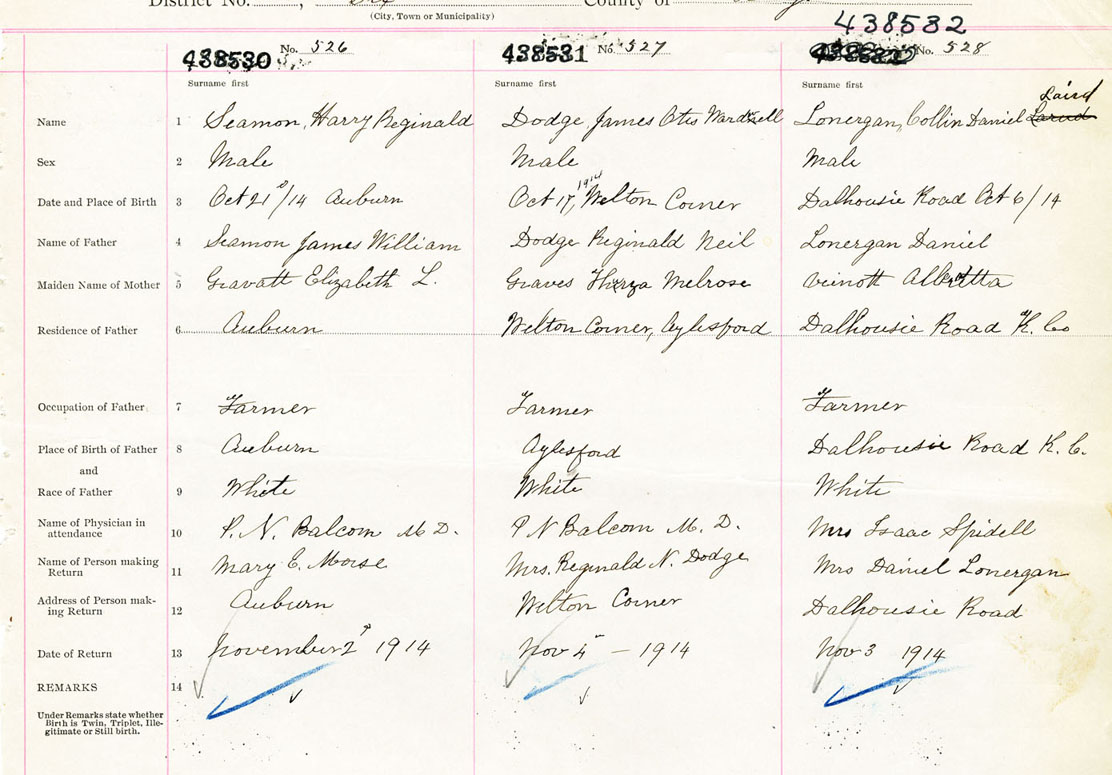 District No. , County of
(City, Town or Municipality)
438532
438530 No. 526 438531 No. 527 No. 528
Surname first Surname first Surname first
Laird
Name 1 Seamon, Harry Reginald Dodge, James Otis Lonergan, Collin Daniel
Sex 2 Male Male Male
1914
Date and Place of Birth 3 Oct 21/14 Auburn Oct 17, Welton Corner Dalhousie Road Oct 6/14
Name of Father 4 Seamon James William Dodge Reginald Neil Lonergan Daniel
Maiden Name of Mother 5 Gravatt Elizabeth L. Graves Melrose Veinott
Residence of Father 6 Auburn Welton Corner, Aylesford Dalhousie Road K. Co
Occupation of Father 7 Farmer Farmer Farmer
Place of Birth of Father 8 Auburn Aylesford Dalhousie Road K. C.
and
Race of Father 9 White White White
Name of Physician in
attendance 10 P. N. Balcom M D. P N Balcom M. D. Mrs Isaac Spidell
Name of Person making
Return 11 Mary E. Morse Mrs. Reginald N. Dodge Mrs Daniel Lonergan
Address of Person mak-
ing Return 12 Auburn Welton Corner Dalhousie Road
Date of Return 13 November 2 1914 Nov 4 - 1914 Nov 3 1914
REMARKS 14
Under Remarks state whether
Birth is Twin, Triplet, Ille-
gitimate or Still birth.